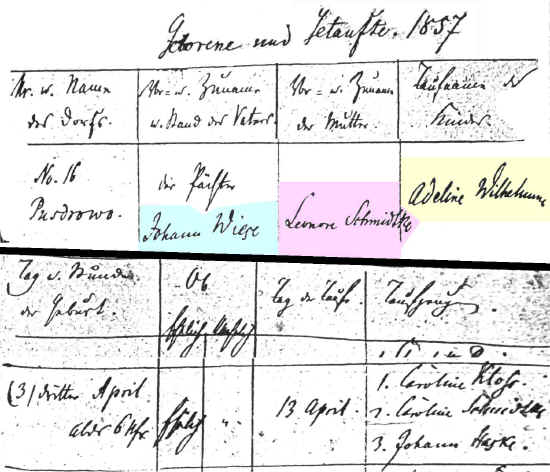 Geborene und Getaufte. 1857
Nr. u. Name
des Dorfs.
Vor= u. Zuname
u. Stand des Vaters.
Vor= u. Zuname
der Mutter.
Taufnamen der
Kinder.
No. 16
Pusdrowo.
der Pächter
Johann Wiese
Leonore Schmidtke
Adeline Wilhelmine
Tag u. Stunde
der Geburt.
Ob
ehelich
Tag der Taufe.
Taufzeugen.
(3) dritten April
6 Uhr
ehelich
"
13 April.
1. Caroline Kloss.
2. Caroline Schmidtke
3. Johann Haske.